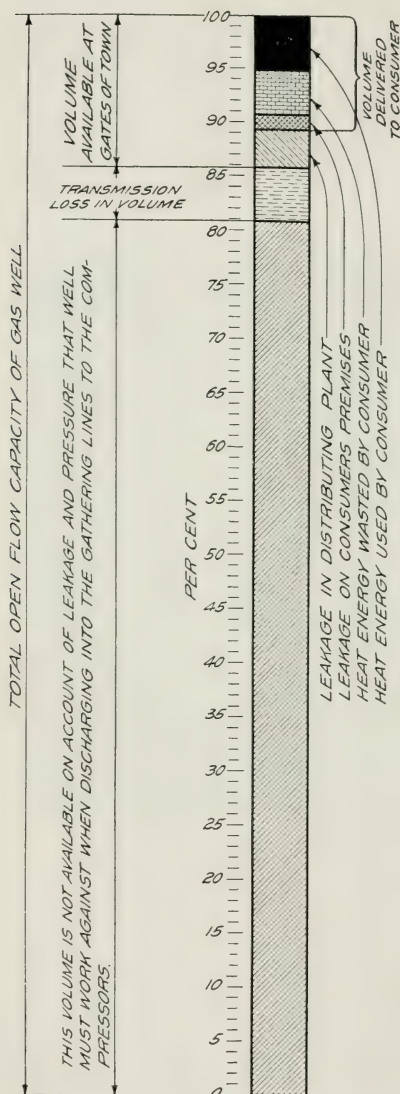 TOTAL OPEN FLOW CAPACITY OF GAS WELL
VOLUME
AVAILABLE AT
GATES OF TOWN
TRANSMISSION
LOSS IN VOLUME
THIS VOLUME IS NOT AVAILABLE ON ACCOUNT OF LEAKAGE AND PRESSURE THAT WELL
MUST WORK AGAINST WHEN DISCHARGING INTO THE GATHERING LINES TO THE COM-
PRESSORS.
PER CENT
100
95
90
85
80
75
70
65
60
55
50
45
40
35
30
25
20
15
10
5
0
VOLUME
DELIVERED
TO CONSUMER
LEAKAGE IN DISTRIBUTING PLANT
LEAKAGE ON CONSUMERS PREMISES
HEAT ENERGY WASTED BY CONSUMER
HEAT ENERGY USED BY CONSUMER